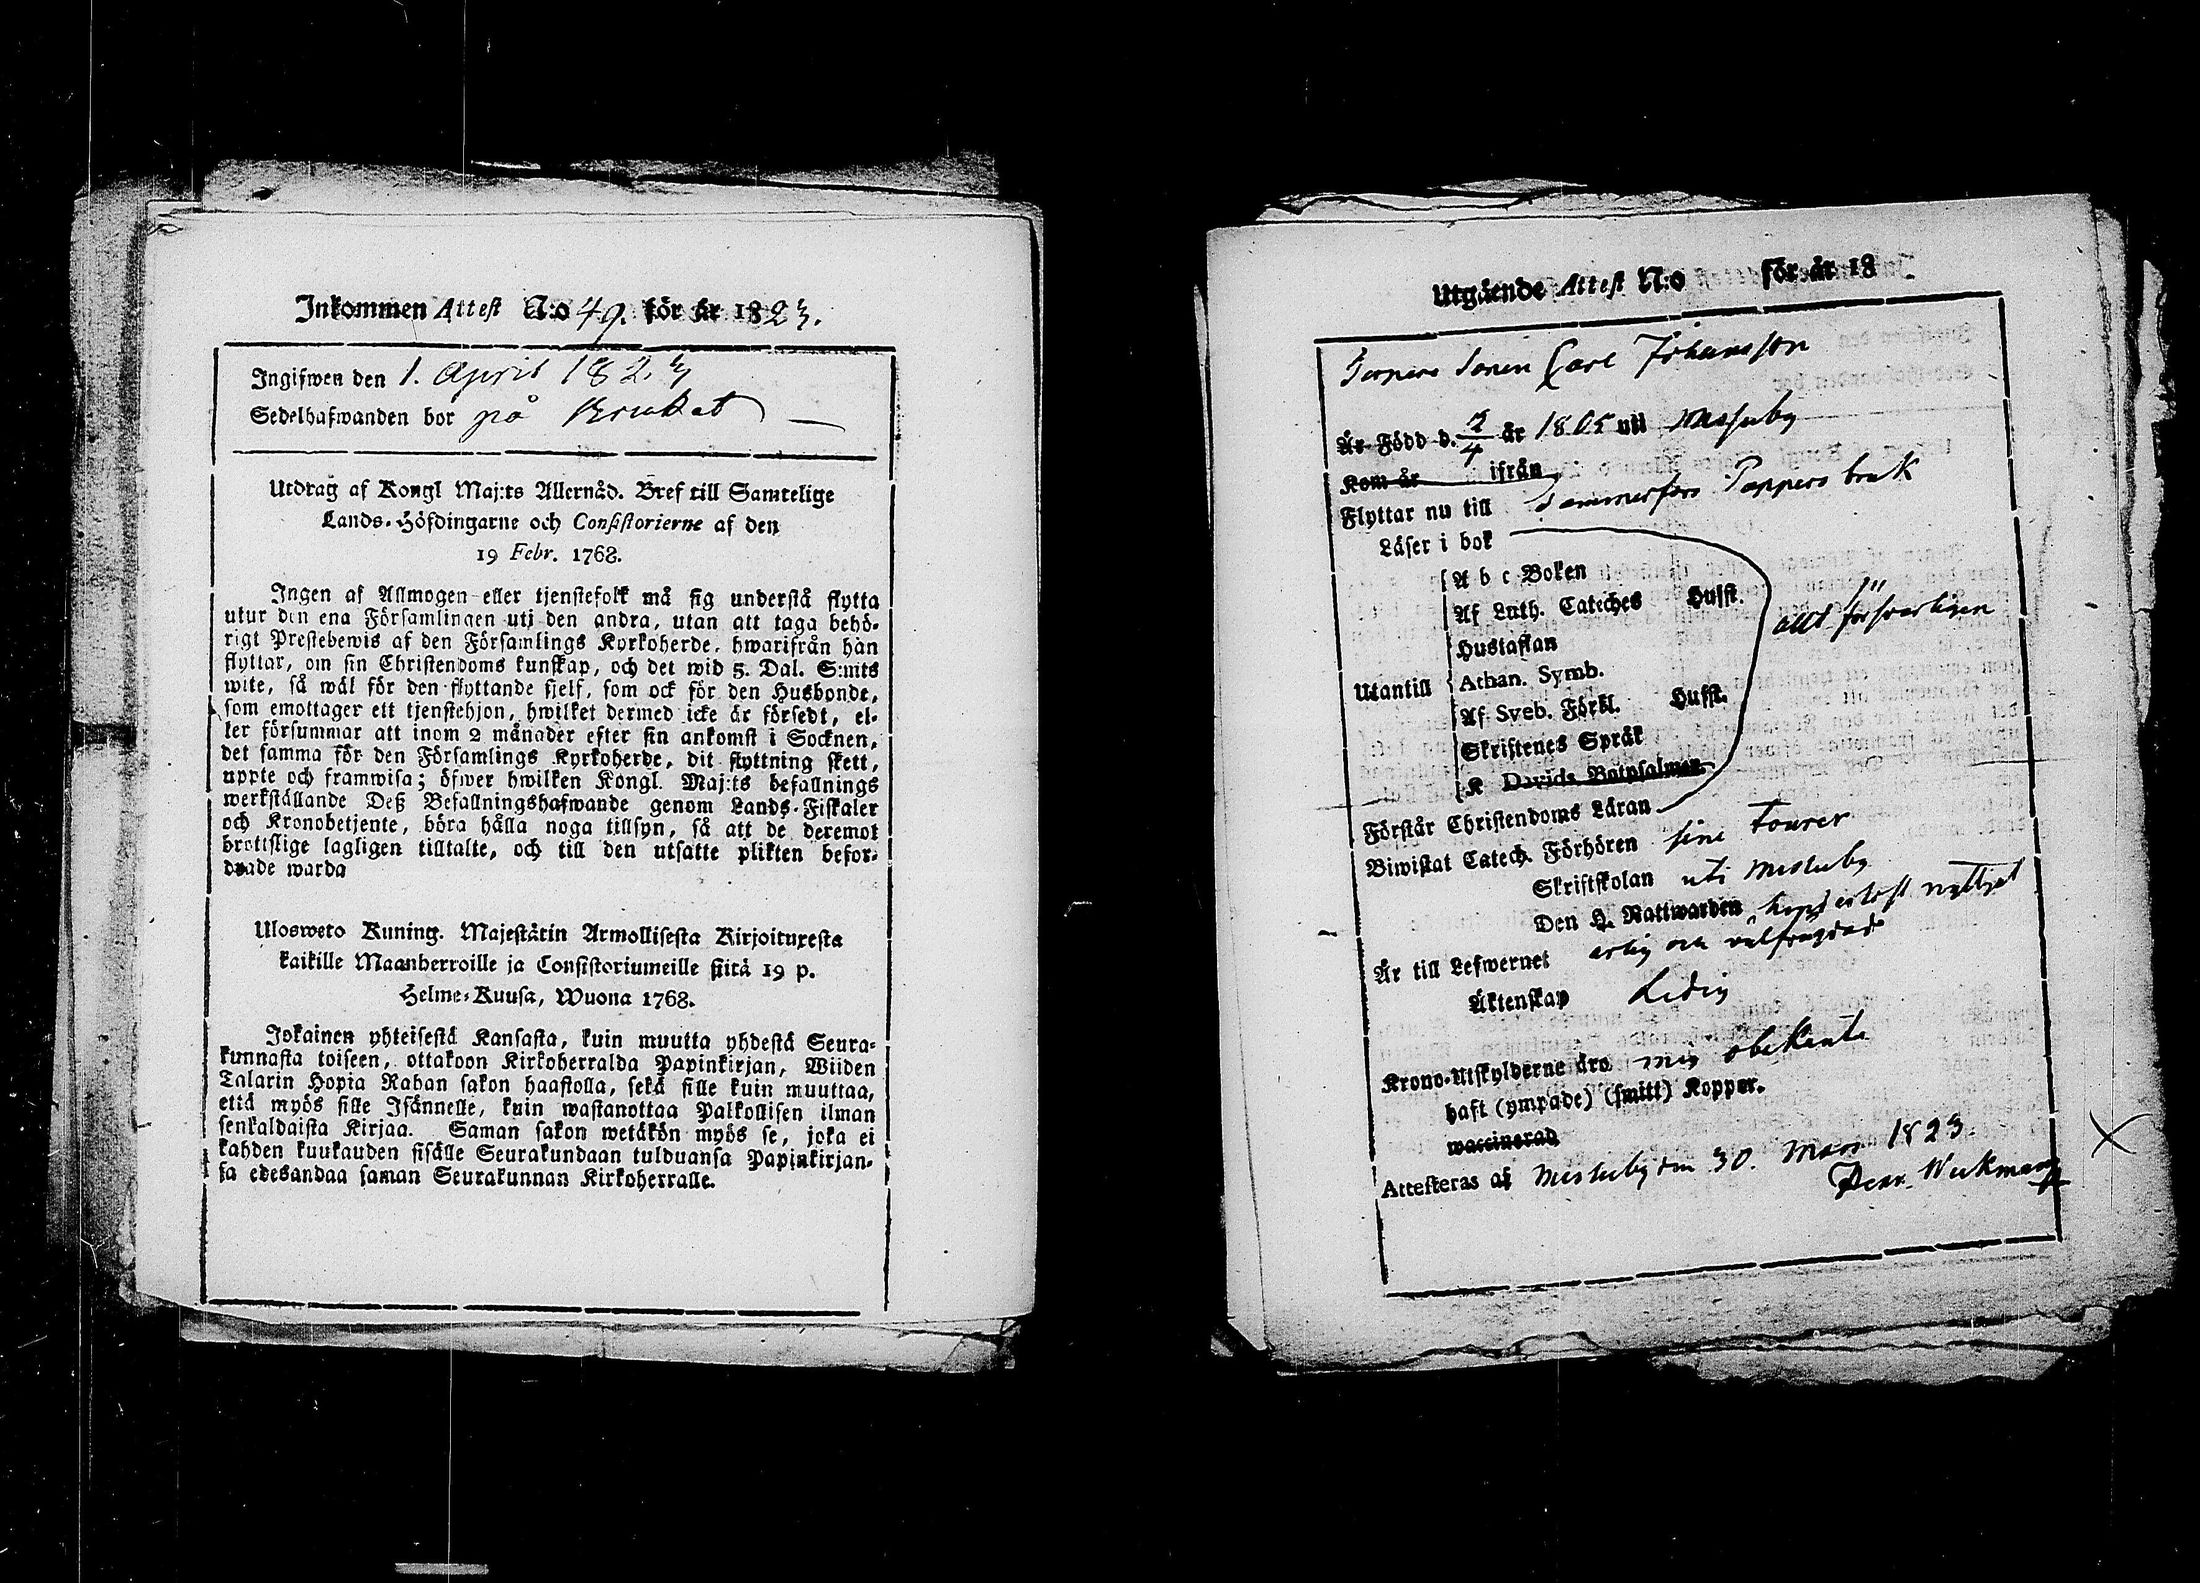 Inkommen Attest N:o 49. för år 1823.
Ingifwen den 1. April 1823
Sedelhafwanden bor på Bruket
Utdrag af Kongl Maj:ts Allernåd. Bref till Samtelige
Lands-Höfdingarne och Consistorierne af den
19 Febr. 1768.
Ingen af Allmogen eller tjenstefolk må sig understå flytta
utur den ena Församlingen uti den andra, utan att taga behö-
rigt Prestebewis af den Församlings Kyrkoherde, hwarifrån han
flyttar, om sin Christendoms kunskap, och det wid 5. Dal. S:mts
wite, så wäl för den flyttande sjelf, som ock för den Husbonde,
som emottager ett tjenstehjon, hwilket dermed icke är försedt, el-
ler försummar att inom 2 månader efter sin ankomst i Socknen,
det samma för den Församlings Kyrkoherde, dit flyttning skett,
uppte och framwisa; öfwer hwilken Kongl. Maj:ts befallnings
werkställande Deß Befallningshafwande genom Lands-Fiskaler
och Kronobetjente, böra hålla noga tillsyn, så att de deremot
brottslige lagligen tilltalte, och till den utsatte plikten befor-
drade warda
Ulosweto Kuning. Majestätin Armollisesta Kirjoituxesta
kaikille Maanherroille ja Consistoriumeille siitä 19 p.
Helme-Kuusa, Wuona 1768.
Jokainen yhteisestä Kansasta, kuin muutta yhdestä Seura-
kunnasta toiseen, ottakoon Kirkoherralda Papinkirjan, Wiiden
Talarin Hopia Rahan sakon haastolla, sekä sille kuin muuttaa,
että myös sille Isännelle, kuin wastanottaa Palkollisen ilman
senkaldaista Kirjaa. Saman sakon wetäkön myös se, joka ei
kahden kuukauden sisälle Seurakundaan tulduansa Papinkirjan-
sa edesandaa saman Seurakunnan Kirkoherralle.
Utgående Attest N:o för år 18
Sonen Carl Johansson
Är Född d. 2/4 år 1805 uti Messuby
Kom år ifrån
Flyttar nu till Tammerfors Pappers bruk
Läser i bok
A b c Boken
Af Luth. Cateches Husst.
Hustaflan
Utantill Athan. Symb.
Af Sveb. Förkl. Husst.
Skriftenes Språk
K Davids Botpsalmer
allt försvarligen
Förstår Christendoms Läran
Biwistat Catech. Förhören sine Tourer
Skriftskolan uti Messuby
Den H. Nattwarden nyttjat
Är till Lefwernet ärlig och välfrägdad
Äktenskap Ledig
Krono-Utskylderne äro mig obekante
haft (ympade) (smitt) Koppor.
waccinerad
Attesteras af Messuby den 30. Mars 1823
Wickman